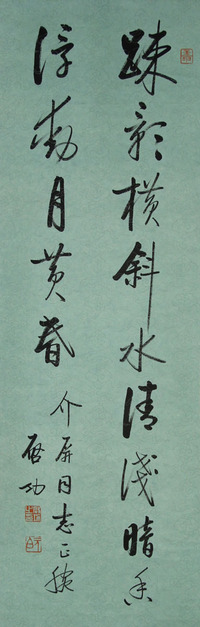 疎影横斜水清淺暗香
浮動月黄昏
介屏同志正腕
启功